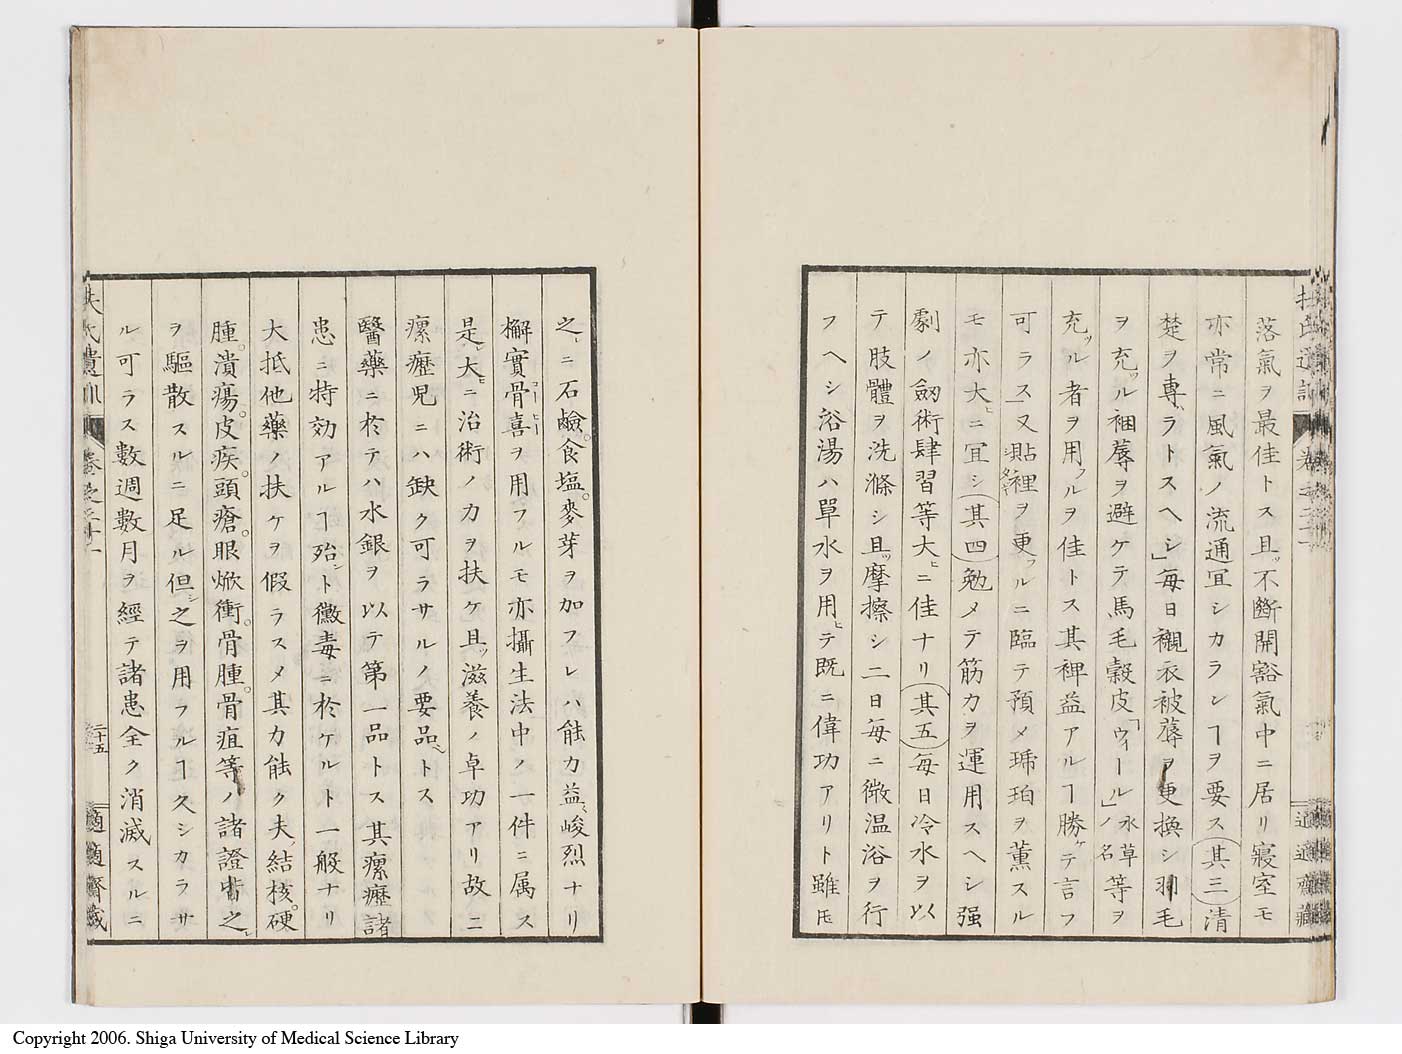 落氣ヲ最佳トス且ッ不斷開豁氣中ニ居リ寢室モ
亦常ニ風氣ノ流通宜シカラシヿヲ要ス其三清
楚ヲ專ラトスヘシ」毎日襯衣被蓐ヲ更換シ羽毛
ヲ充ツル裀蓐ヲ避ケテ馬毛糓皮「ウィール」ノ名水草等ヲ
充ツル者ヲ用フルヲ佳トス其裨益アルヿ勝ケテ言フ
可ラス」又貼裡ヲ更フルニ臨テ預メ琥珀ヲ薫スル
モ亦大ヒニ宜シ其四勉メテ筋力ヲ運用スヘシ强
劇ノ劔術肆習等大ヒニ佳ナリ其五毎日冷水ヲ以
テ肢體ヲ洗滌シ且ッ摩擦シ二日毎ニ微温浴ヲ行
フヘシ浴湯ハ單水ヲ用ヒテ既ニ偉功アリト雖𪜈
之ニ石鹸食塩麥芽ヲ加フレハ能力益〻峻烈ナリ
檞實骨喜ヲ用フルモ亦攝生法中ノ一件ニ属ス
是レ大ヒニ治術ノカヲ扶ケ且ッ滋養ノ卓功アリ故ニ
瘰癧児ニハ缺ク可ラサルノ要品トス
醫藥ニ於テハ水銀ヲ以テ第一品トス其瘰癧諸
患ニ持効アルヿ殆ント黴毒ニ於ケルト一般ナリ
大抵他藥ノ扶ケヲ假ラスメ其力能ク夫ノ結核硬
腫潰瘍皮疾頭瘡眼焮衝骨腫骨疽等ノ諸證皆之レ
ヲ驅散スルニ足ル但シ之ヲ用フルヿ久シカラサ
ル可ラス數週數月ヲ經テ諸患全ク消滅スルニ
扶氏遺訓
二十五
適適齋藏
Copyright 2006. Shiga University of Medical Science Library